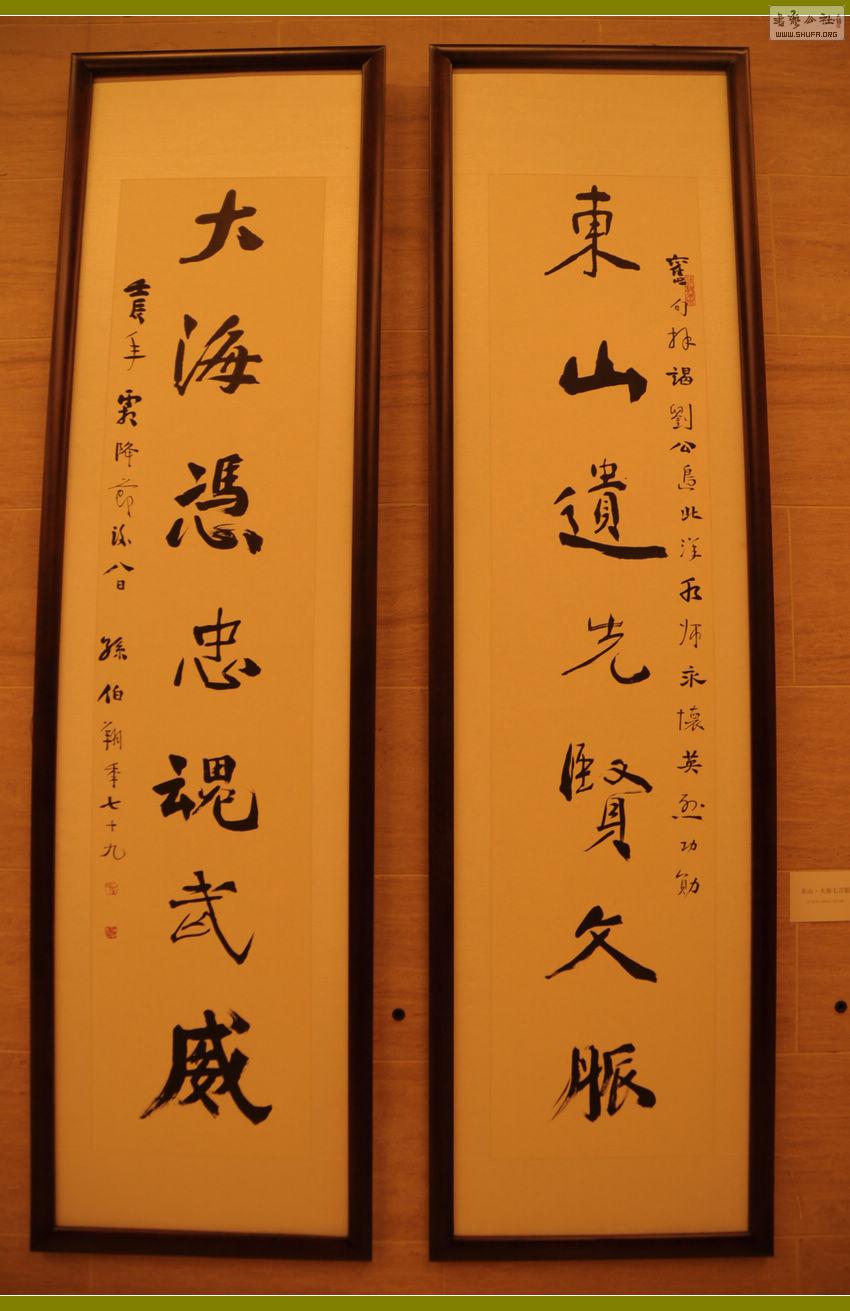 東山遺先賢文脈
舊句拜謁劉公島此洋水师永懷英烈功勛
大海憑忠魂武威
壬辰年霜降節後八日 孫伯翔年七十九
東山·大海七言聯
書藝公社
WWW.SHUFA.ORG